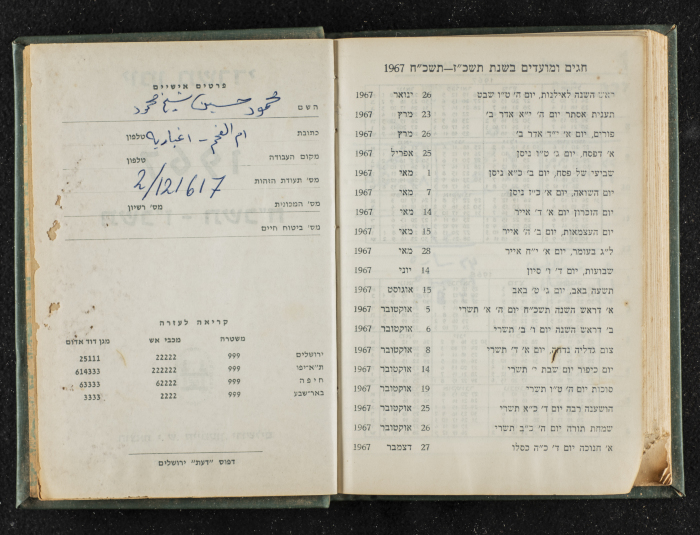 פרטים אישיים
השם محمود حسين شيخ محمود
כתובת ام الفحم - اغبارية טלפון
מקום העבודה טלפון
מס׳ תעודת הזהות 2/121617
מס׳ המכונית מס׳ רשיון
מס׳ ביטוח חיים
קריאה לעזרה
משטרה מכבי אש מגן דוד אדום
ירושלים 999 22222 25111
ת״א־יפו 999 222222 614333
חיפה 999 62222 63333
באר־שבע 999 2222 3333
דפוס "דעת" ירושלים
חגים ומועדים בשנת תשכ״ז—תשכ״ח 1967
ראש השנה לאילנות, יום ה׳ ט״ו שבט 26 ינואר 1967
תענית אסתר יום ה׳ י״א אדר ב׳ 23 מרץ 1967
פורים, יום א׳ י״ד אדר ב׳ 26 מרץ 1967
א׳ דפסח, יום ג׳ ט״ו ניסן 25 אפריל 1967
שביעי של פסח, יום ב׳ כ״א ניסן 1 מאי 1967
יום השואה, יום א׳ כ״ז ניסן 7 מאי 1967
יום הזכרון יום א׳ ד׳ אייר 14 מאי 1967
יום העצמאות, יום ב׳ ה׳ אייר 15 מאי 1967
ל״ג בעומר, יום א׳ י״ח אייר 28 מאי 1967
שבועות, יום ד׳ ו׳ סיון 14 יוני 1967
תשעה באב, יום ג׳ ט׳ באב 15 אוגוסט 1967
א׳ דראש השנה תשכ״ח יום ה׳ א׳ תשרי 5 אוקטובר 1967
ב׳ דראש השנה יום ו׳ ב׳ תשרי 6 אוקטובר 1967
צום גדליה נדחה, יום א׳ ד׳ תשרי 8 אוקטובר 1967
יום כיפור יום שבת י׳ תשרי 14 אוקטובר 1967
סוכות יום ה׳ ט״ו תשרי 19 אוקטובר 1967
הושענה רבה יום ד׳ כ״א תשרי 25 אוקטובר 1967
שמחת תורה יום ה׳ כ״ב תשרי 26 אוקטובר 1967
א׳ חנוכה יום ד׳ כ״ה כסלו 27 דצמבר 1967